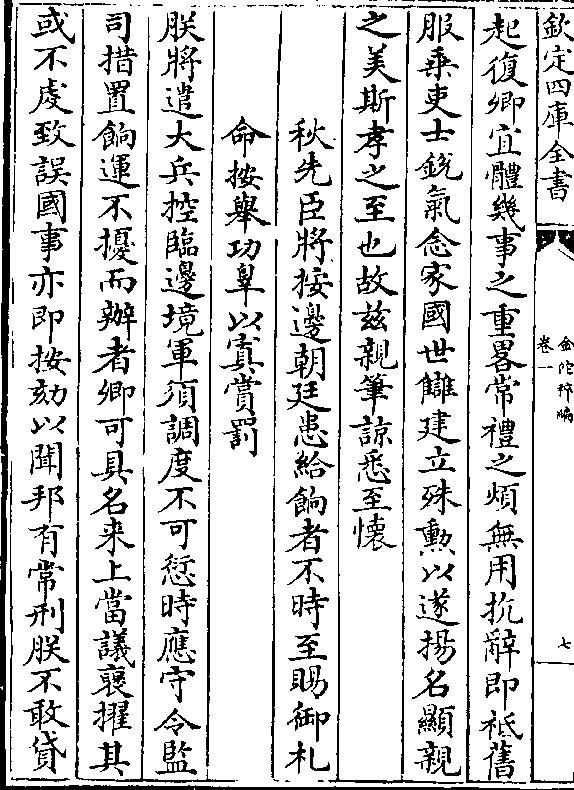 欽定四庫全書
金陀稡編
卷一
七
起復卿宜體幾事之重畧常禮之煩無用抗辭即祗舊
服乗吏士鋭氣念家國世讎建立殊勲以遂揚名顯親
之美斯孝之至也故兹親筆諒悉至懷
秋先臣將按邊朝廷患給餉者不時至賜御札
命按舉功辠以寘賞罰
朕將遣大兵控臨邊境軍須調度不可愆時應守令監
司措置餉運不擾而辦者卿可具名来上當議襃擢其
或不虔致誤國事亦即按劾以聞邦有常刑朕不敢貸